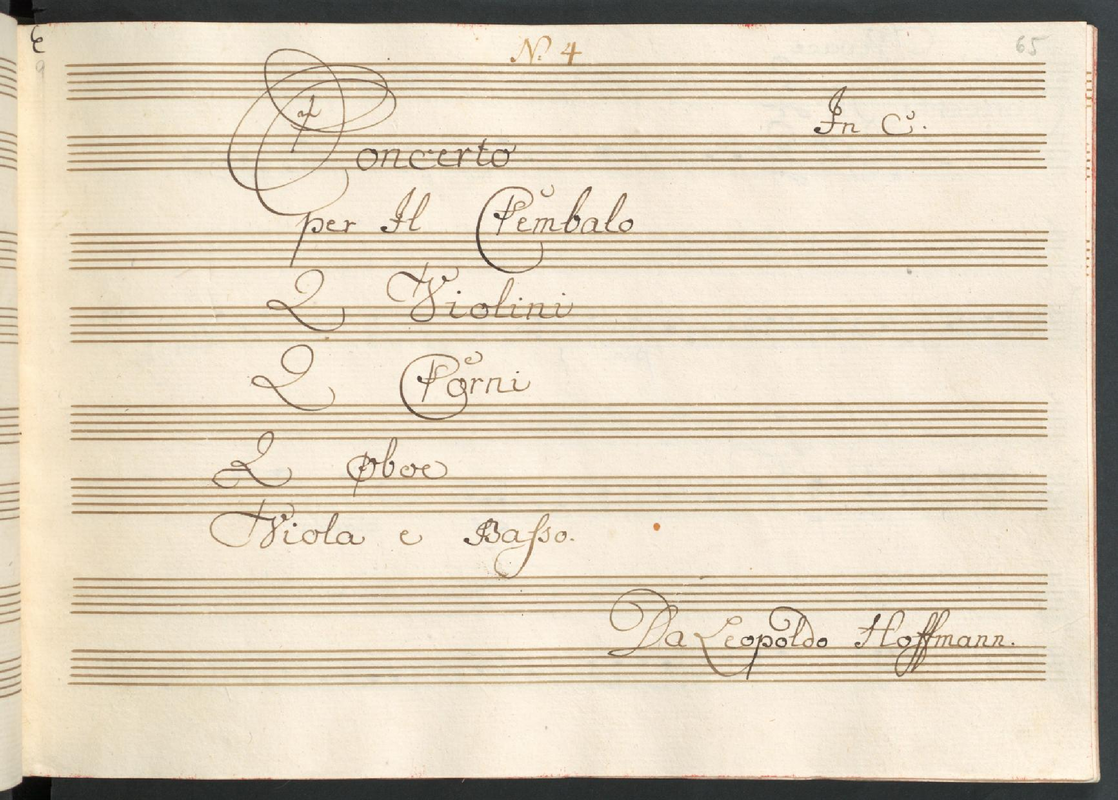 N. 4
65
In C.
Concerto
per Il Cembalo
2 Violini
2 Corni
2 Oboe
Viola e Basso.
Da Leopoldo Hoffmann.